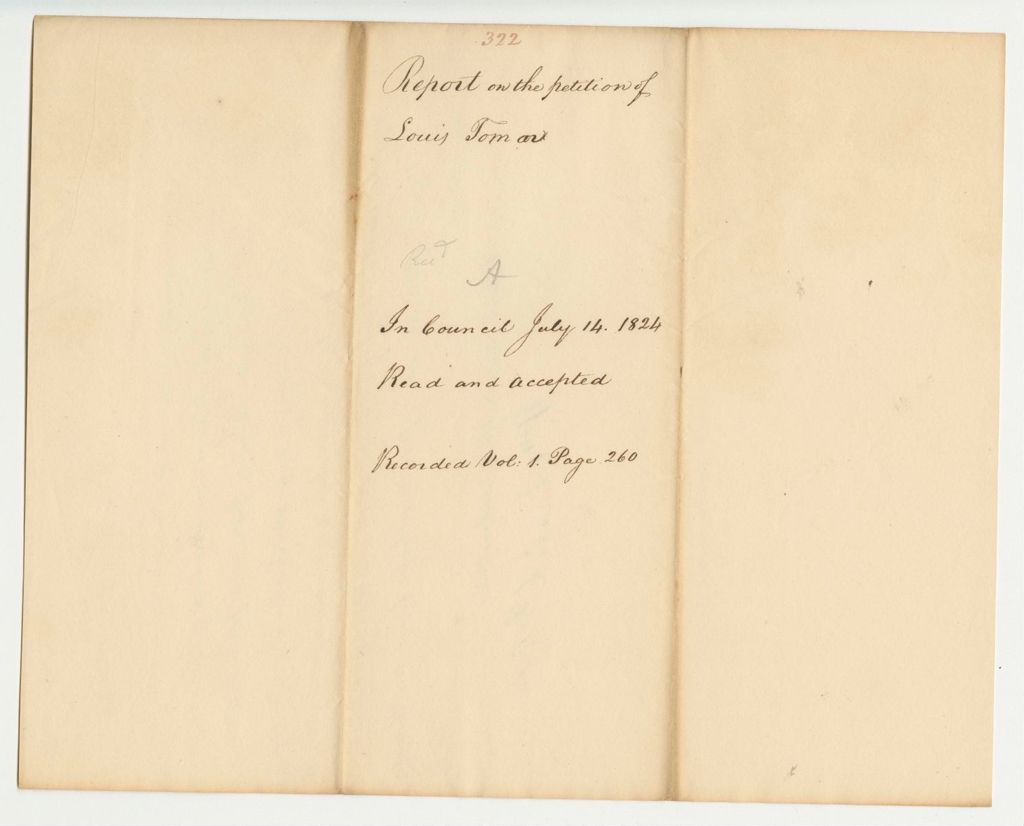 322
Report on the petition of
Louis Tomar
Recd
A
In Council July 14. 1824
Read and accepted
Recorded Vol: 1. Page 260